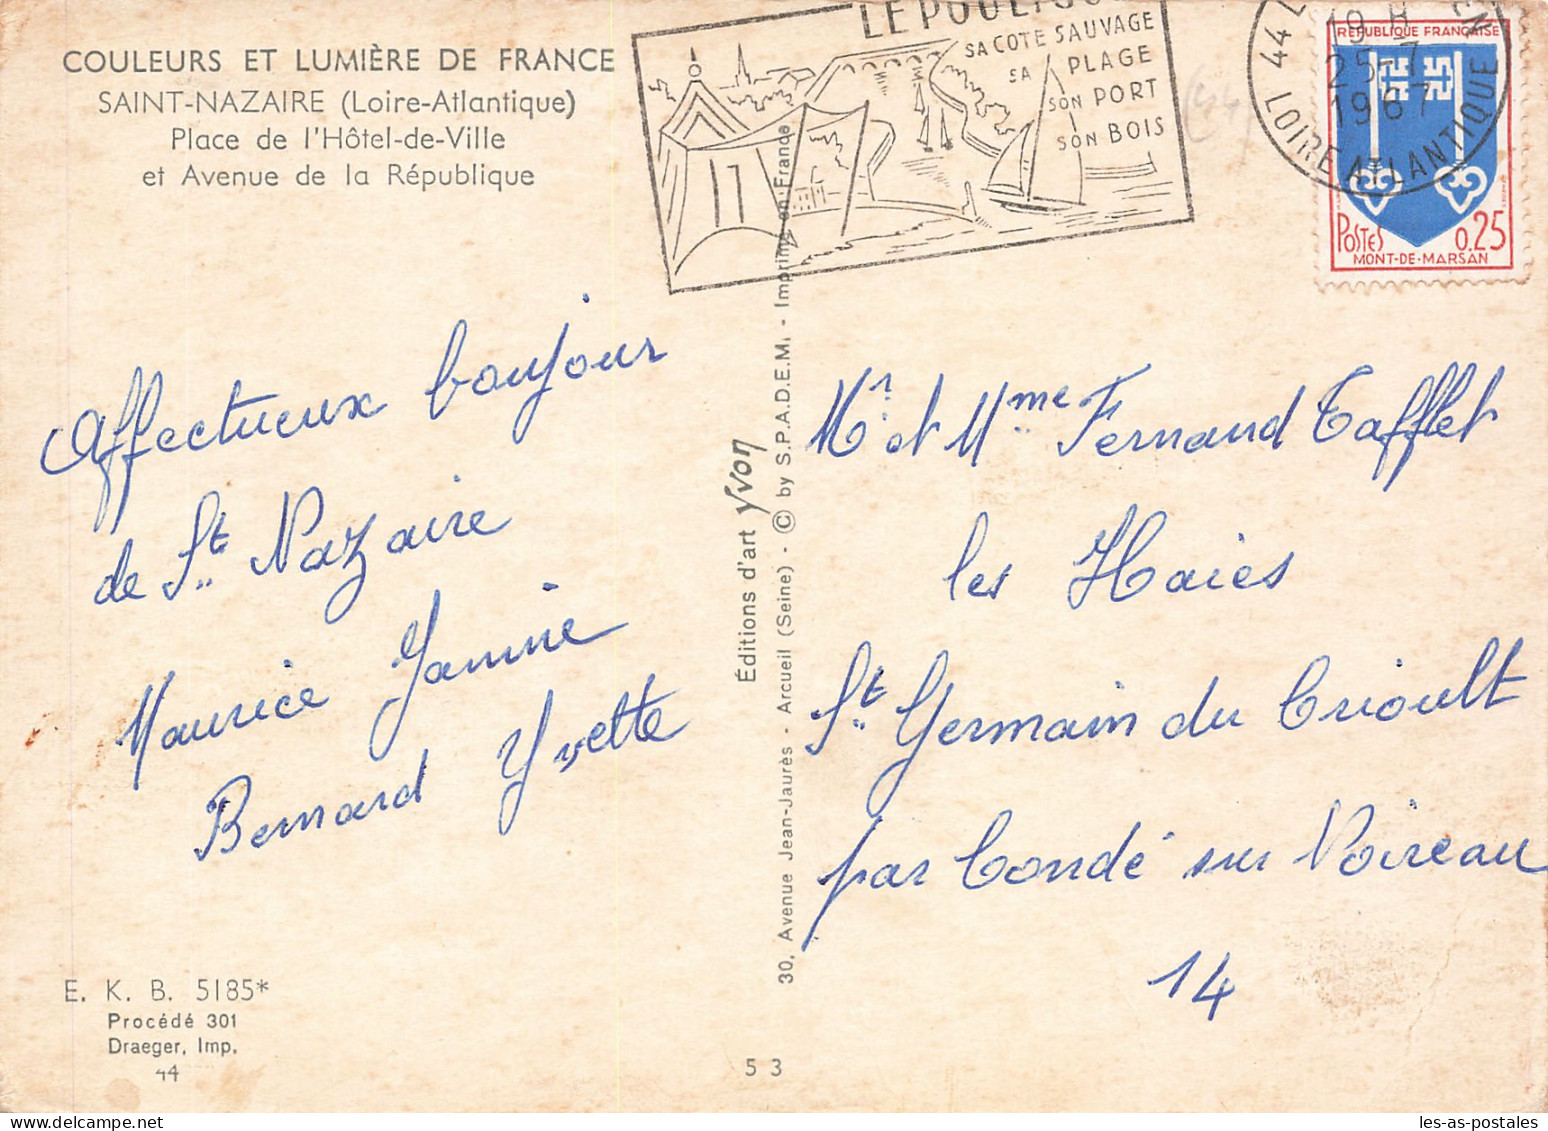 COULEURS ET LUMIÈRE DE FRANCE
SAINT-NAZAIRE (Loire-Atlantique)
Place de l'Hôtel-de-Ville
et Avenue de la République
LE POULIGUEN
SA COTE SAUVAGE
SA PLAGE
SON PORT
SON BOIS
44 LE POULIGUEN
19 H
25-7
1967
LOIRE ATLANTIQUE
RÉPUBLIQUE FRANÇAISE
POSTES 0,25
MONT-DE-MARSAN
(44)
Affectueux bonjour
de St. Nazaire
Maurice Janine
Bernard Yvette
Mr et Mme Fernand Tafflet
les Haies
St. Germain du Crioult
par Condé sur Noireau
14
Éditions d'art Yvon
30, Avenue Jean-Jaurès - Arcueil (Seine) - © by S.P.A.D.E.M. - Imprimé en France
E. K. B. 5185*
Procédé 301
Draeger, Imp.
44
5 3
les-as-postales